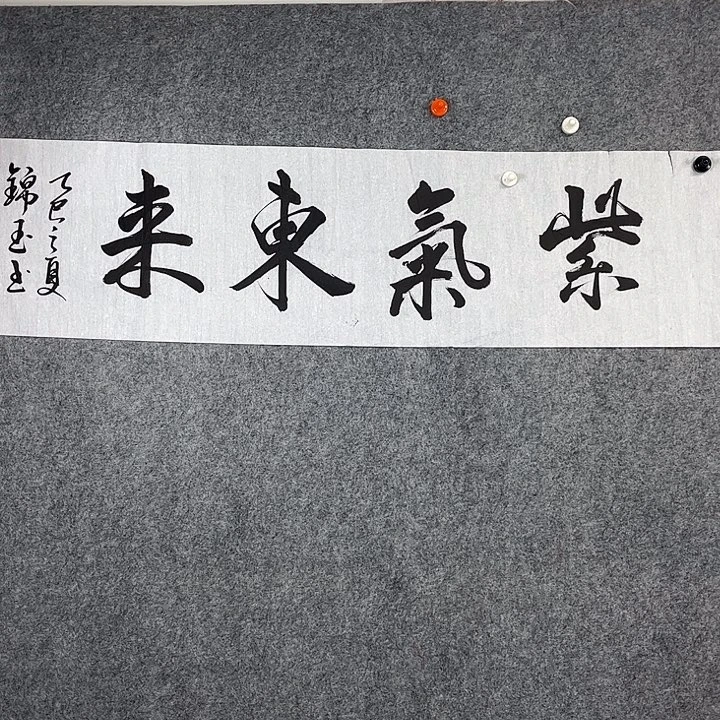 紫氣東来
乙巳之夏
錦玉